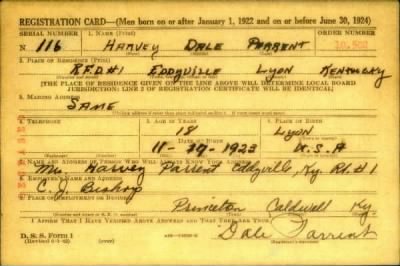 REGISTRATION CARD—(Men born on or after January 1, 1922 and on or before June 30, 1924)
SERIAL NUMBER 1. NAME (Print) ORDER NUMBER
N 116 HARVEY DALE PARRENT 10,502
2. PLACE OF RESIDENCE (Print)
R.F.D #1 EDDYVILLE LYON KENTUCKY
[THE PLACE OF RESIDENCE GIVEN ON THE LINE ABOVE WILL DETERMINE LOCAL BOARD
JURISDICTION; LINE 2 OF REGISTRATION CERTIFICATE WILL BE IDENTICAL]
3. MAILING ADDRESS
SAME
4. TELEPHONE 5. AGE IN YEARS 6. PLACE OF BIRTH
18 Lyon
DATE OF BIRTH
11-29-1923 U.S.A
7. NAME AND ADDRESS OF PERSON WHO WILL ALWAYS KNOW YOUR ADDRESS
Harvey Parrent Eddyville, Ky. Rt. #1
8. EMPLOYER'S NAME AND ADDRESS
C. J. Bishop
9. PLACE OF EMPLOYMENT OR BUSINESS
Princeton Caldwell Ky.
I AFFIRM THAT I HAVE VERIFIED ABOVE ANSWERS AND THAT THEY ARE TRUE.
D. S. S. Form 1
Dale Parrent